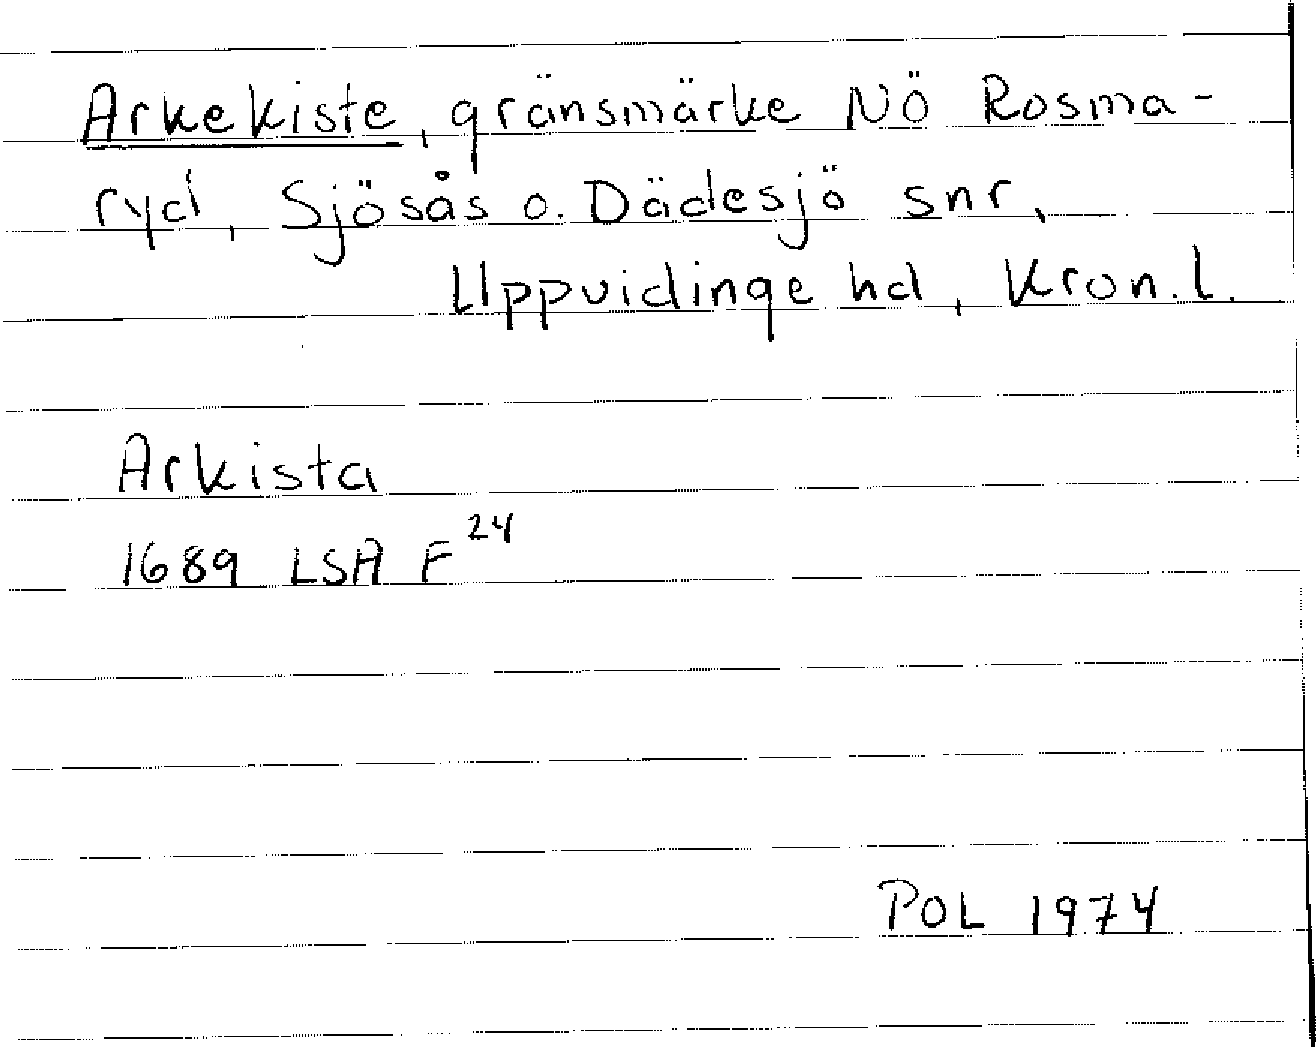 Arkekiste, gränsmärke NÖ Rosma-
ryd, Sjösås o. Dädesjö snr,
Uppvidinge hd, Kron. l.
Arkista
1689 LSA F 24
POL 1974